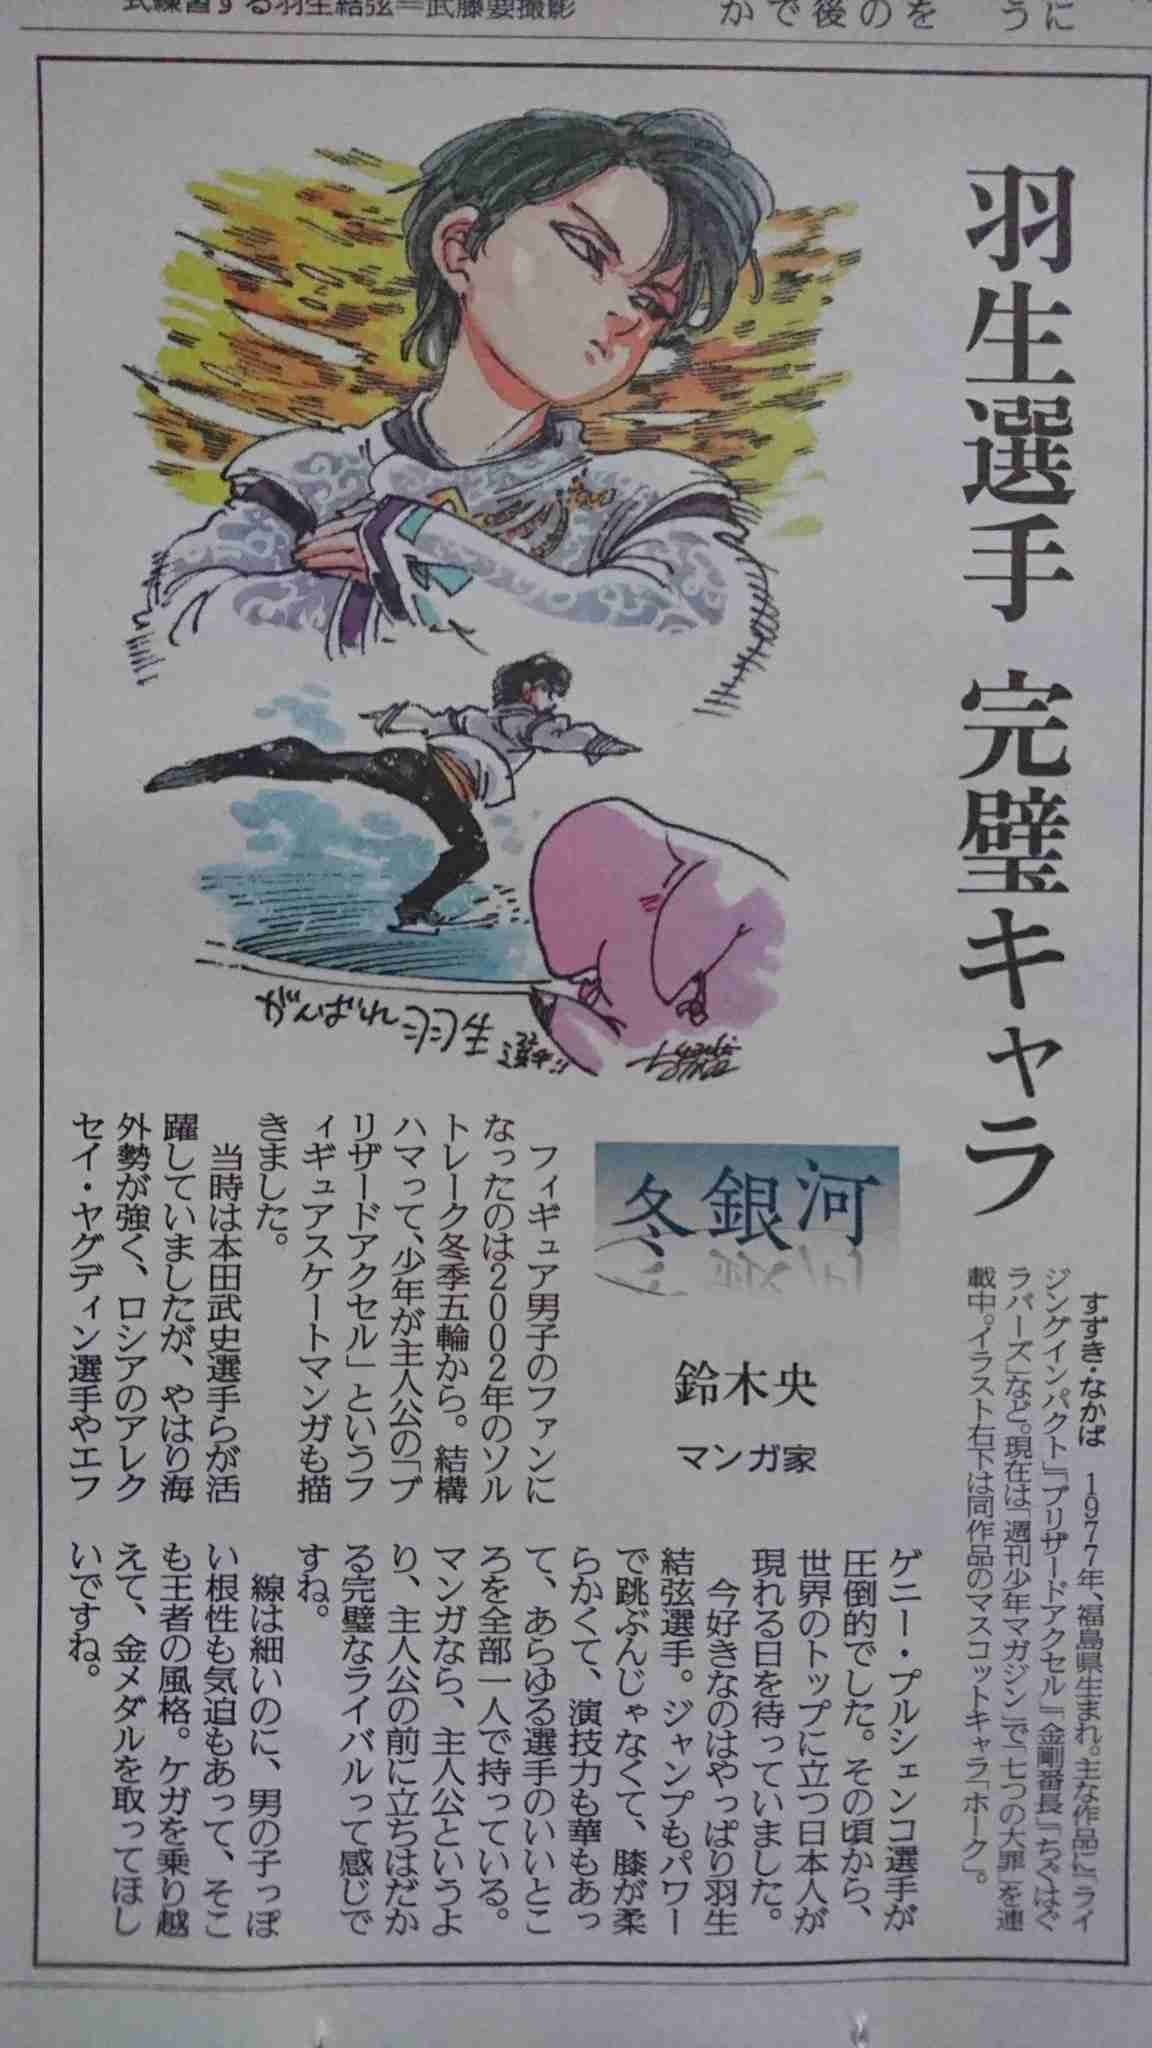 式練習する羽生結弦＝武藤要撮影
に
う
を
の
後
で
か
羽生選手 完璧キャラ
すずき・なかば 1977年、福島県生まれ。主な作品に『ライ
ジングインパクト』『ブリザードアクセル』『金剛番長』『ちぐはぐ
ラバーズ』など。現在は「週刊少年マガジン」で『七つの大罪』を連
載中。イラスト右下は同作品のマスコットキャラ「ホーク」。
冬銀河
鈴木央
マンガ家
がんばれ
はにゅう
選手!!
フィギュア男子のファンに
なったのは2002年のソル
トレーク冬季五輪から。結構
ハマって、少年が主人公の「ブ
リザードアクセル」というフ
ィギュアスケートマンガも描
きました。
当時は本田武史選手らが活
躍していましたが、やはり海
外勢が強く、ロシアのアレク
セイ・ヤグディン選手やエフ
ゲニー・プルシェンコ選手が
圧倒的でした。その頃から、
世界のトップに立つ日本人が
現れる日を待っていました。
今好きなのはやっぱり羽生
結弦選手。ジャンプもパワー
で跳ぶんじゃなくて、膝が柔
らかくて、演技力も華もあっ
て、あらゆる選手のいいとこ
ろを全部一人で持っている。
マンガなら、主人公というよ
り、主人公の前に立ちはだか
る完璧なライバルって感じで
すね。
線は細いのに、男の子っぽ
い根性も気迫もあって、そこ
も王者の風格。ケガを乗り越
えて、金メダルを取ってほし
いですね。